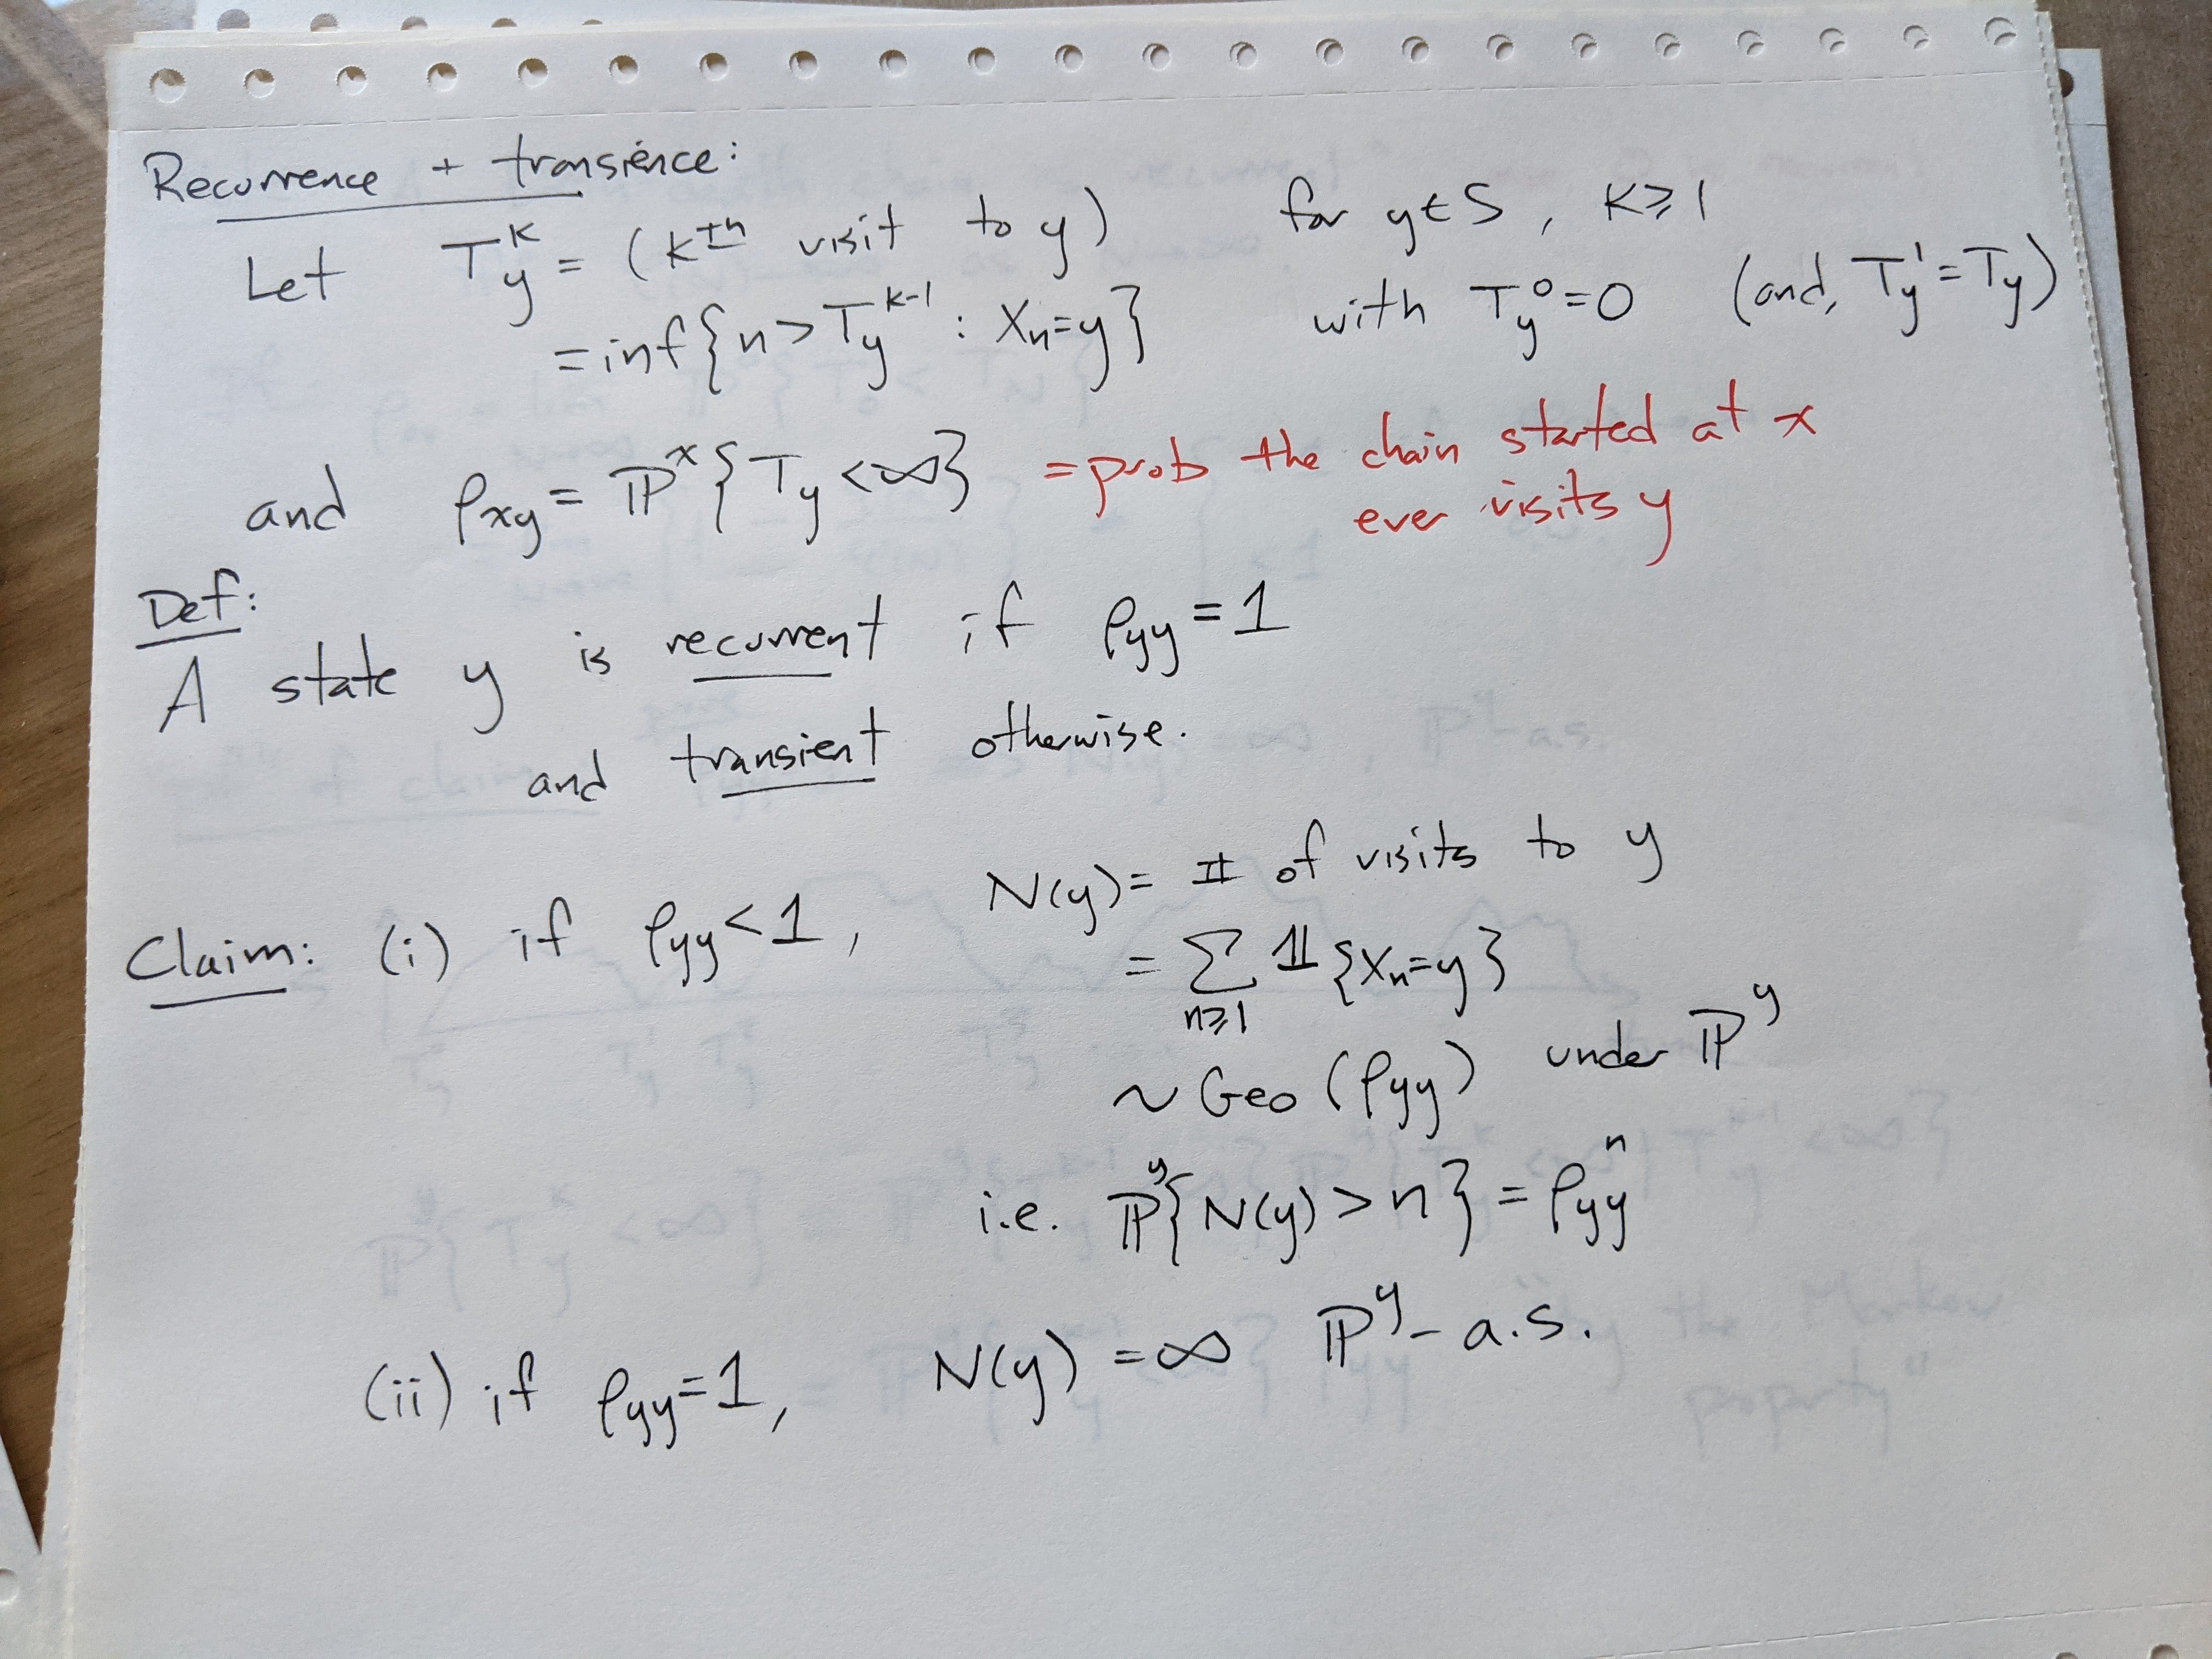 Recurrence + transience:
Let T_y^k = (kth visit to y) for y∈S, k≥1
= inf{n > T_y^{k-1} : X_n = y} with T_y^0 = 0 (and, T_y^1 = T_y)
and ρ_xy = ℙ^x{T_y < ∞} = prob the chain started at x
ever visits y
Def:
A state y is recurrent if ρ_yy = 1
and transient otherwise.
Claim: (i) if ρ_yy < 1, N(y) = # of visits to y
= ∑_{n≥1} 𝟙{X_n = y}
~ Geo(ρ_yy) under ℙ^y
i.e. ℙ^y{N(y) > n} = ρ_yy^n
(ii) if ρ_yy = 1, N(y) = ∞ ℙ^y - a.s.